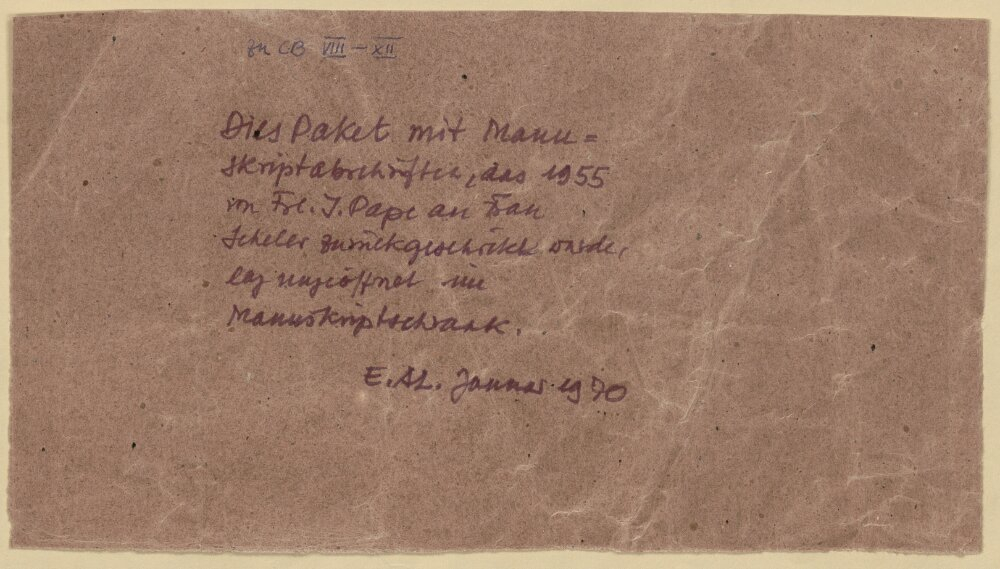 zu CB VIII – XII
Dies Paket mit Manu=
skriptabschriften, das 1955
von Frl. I. Pape an Frau
Scheler zurückgeschickt wurde,
lag ungeöffnet im
Manuskriptschrank.
E. AL. Januar 1970